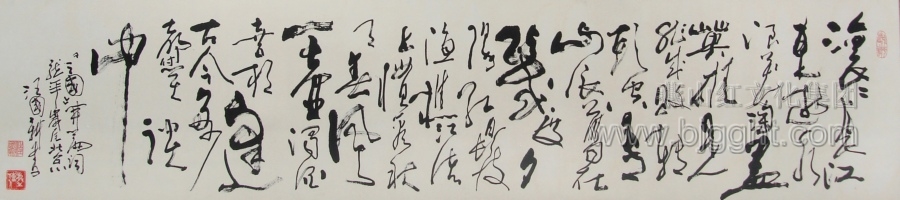 滚滚长江
东逝水
浪花淘尽
英雄是
非成败转
头空青
山依旧在
几度夕
阳红白发
渔樵江渚
上惯看秋
月春风一
壶浊酒
喜相逢
古今多少
事都付笑谈
中
汪國新